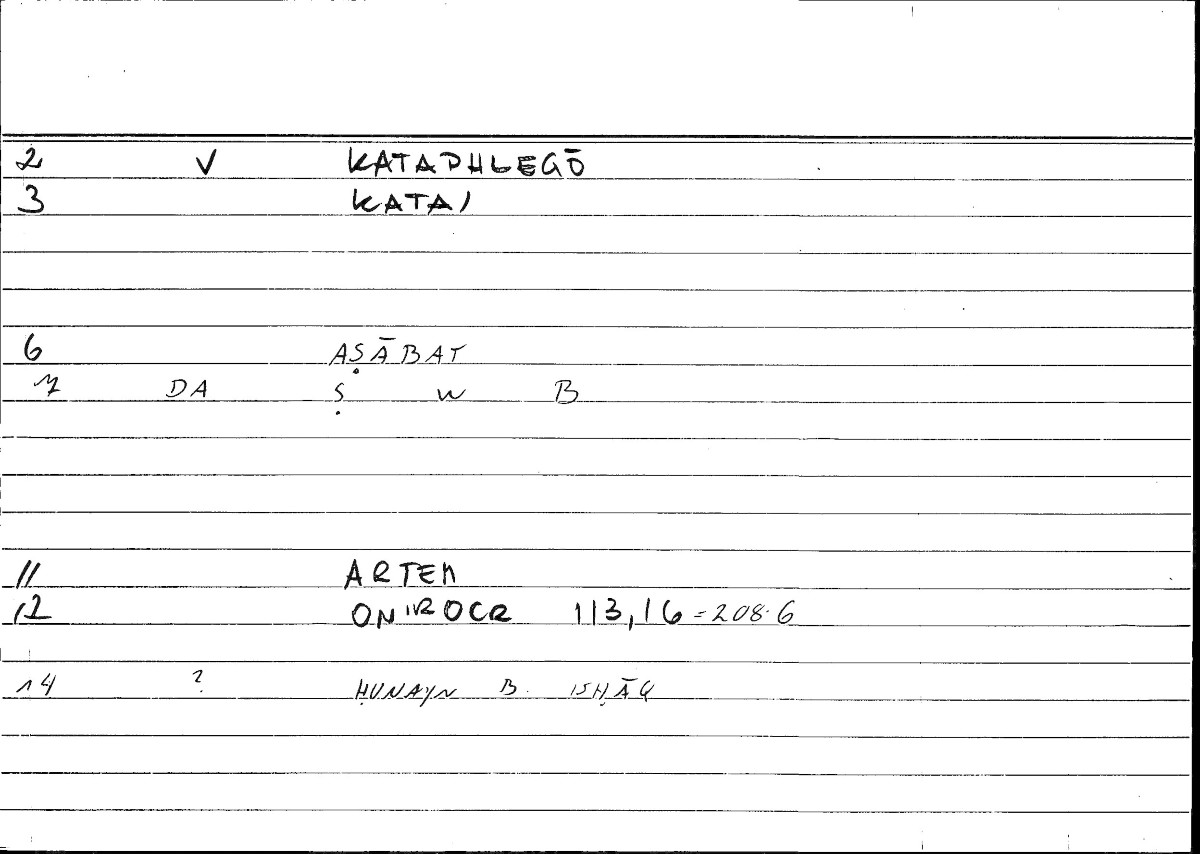 2 V KATAPHLEGŌ
3 KATAI
6 AṢĀBAT
7 DA Ṣ W B
11 ARTEM
12 ONIROCR 113,16 = 208.6
14 ? ḤUNAYN B. ISḤĀQ